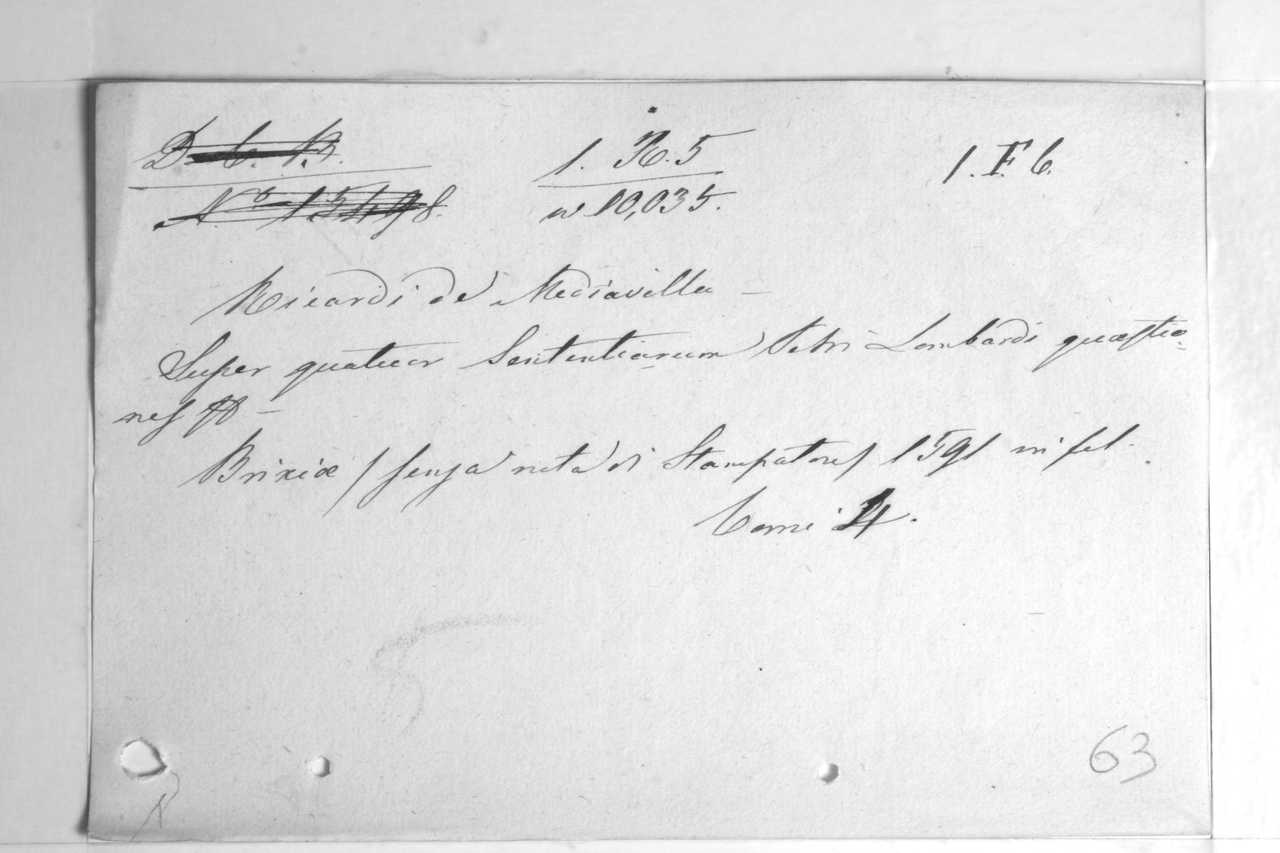 D. C. R. 1. K. 5 1. F. 6.
N.º 15498. n 10,035.
Ricardi de Mediavilla –
Super quatuor Sententiarum Petri Lombardi quæstio-
nes –
Brixiæ / senza nota di Stampatore / 1591 in fol.
Tomi 4.
63